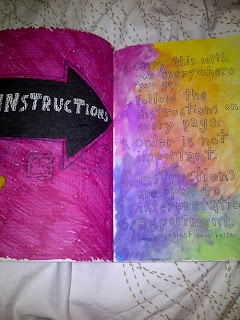 INSTRUCTIONS
1. Carry this with
you everywhere
you go.
2. follow the
instructions on
every page.
3. Order is not
important.
4. instructions
are open to
interpretation.
5. experiment.